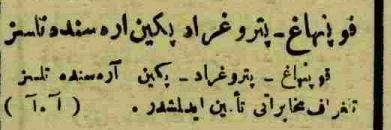 قوپنهاغ - پتروغراد پكين اره سنده تلسز
قوپنهاغ - پتروغراد - پكين آره سنده تلسز
تلغراف مخابراتى تأمين ايدلمشدر . ( آ . آ )